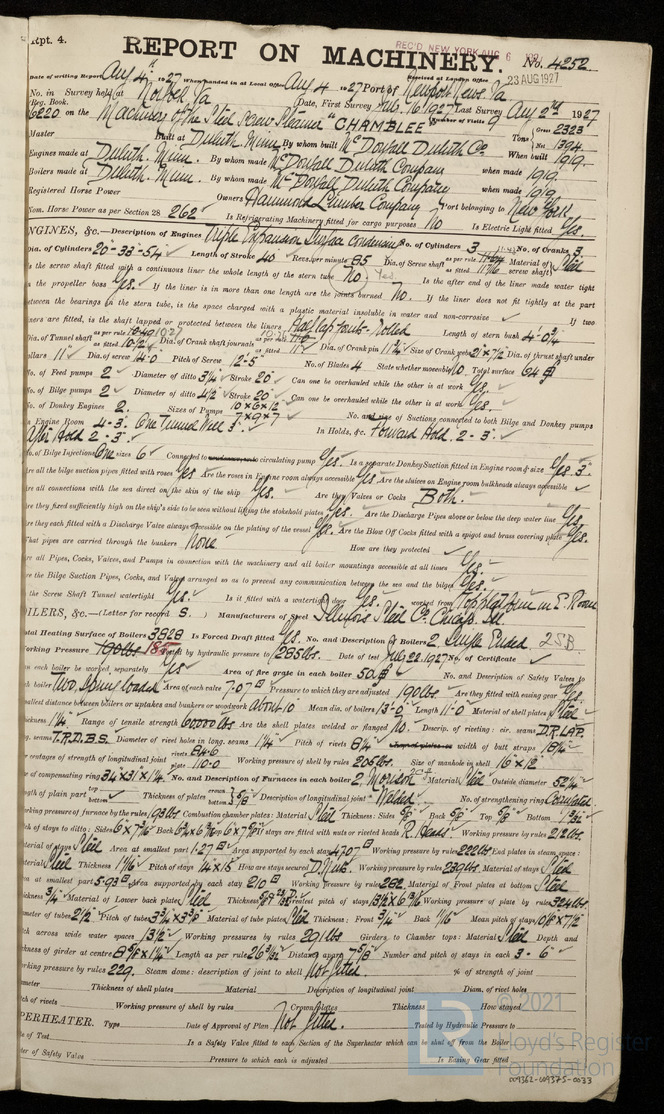 Rpt. 4.
REC'D NEW YORK AUG 6
REPORT ON MACHINERY.
No. 4252.
Date of writing Report Aug 4th 1927 When handed in at Local Office Aug 4 1927 Port of Newport News, Va
Received at London Office 23 AUG 1927
No. in Survey held at Norfolk, Va Date, First Survey 16 1927 Last Survey Aug 2nd 1927
Reg. Book. Number of Visits 9
6220 on the Machinery of the Steel Screw Steamer "CHAMBLEE"
Tons Gross 2323 Net 1394
Master Built at Duluth Minn. By whom built McDougall Duluth Co. When built 1919.
Engines made at Duluth. Minn. By whom made McDougall Duluth Company when made 1919.
Boilers made at Duluth. Minn. By whom made McDougall Duluth Company when made 1919
Registered Horse Power Owners Hammond Lumber Company Port belonging to New York.
Nom. Horse Power as per Section 28 262 Is Refrigerating Machinery fitted for cargo purposes No Is Electric Light fitted Yes.
ENGINES, &c.—Description of Engines Triple Expansion Surface Condensing No. of Cylinders 3 No. of Cranks 3
Dia. of Cylinders 20-33-54 Length of Stroke 40 Revs. per minute 85 Dia. of Screw shaft as per rule as fitted 11 7/16 Material of screw shaft Steel
Is the screw shaft fitted with a continuous liner the whole length of the stern tube No Yes Is the after end of the liner made water tight
in the propeller boss Yes. If the liner is in more than one length are the joints burned No. If the liner does not fit tightly at the part
between the bearings in the stern tube, is the space charged with a plastic material insoluble in water and non-corrosive If two
liners are fitted, is the shaft lapped or protected between the liners Length of stern bush 4'-0 3/4
Dia. of Tunnel shaft as per rule as fitted 10 1/2 Dia. of Crank shaft journals as per rule as fitted Dia. of Crank pin 11 3/4 Size of Crank webs 21 x 7 1/2 Dia. of thrust shaft under
collars 11 Dia. of screw 14'0 Pitch of Screw 12-5 No. of Blades 4 State whether moveable No. Total surface 64
No. of Feed pumps 2 Diameter of ditto 3 1/4 Stroke 20 Can one be overhauled while the other is at work Yes.
No. of Bilge pumps 2 Diameter of ditto 4 1/2 Stroke 20 Can one be overhauled while the other is at work Yes.
No. of Donkey Engines 2. Sizes of Pumps 10x6x12 7x9x7 No. and size of Suctions connected to both Bilge and Donkey pumps
In Engine Room 4-3. One Tunnel Well 3. In Holds, &c. Forward Hold. 2-3.
After Hold 2-3.
No. of Bilge Injections One sizes 6 Connected to circulating pump Yes. Is a separate Donkey Suction fitted in Engine room & size Yes. 3"
Are all the bilge suction pipes fitted with roses Yes Are the roses in Engine room always accessible Yes Are the sluices on Engine room bulkheads always accessible
Are all connections with the sea direct on the skin of the ship Yes. Are they Valves or Cocks Both.
Are they fixed sufficiently high on the ship's side to be seen without lifting the stokehold plates Yes. Are the Discharge Pipes above or below the deep water line Yes.
Are they each fitted with a Discharge Valve always accessible on the plating of the vessel Yes. Are the Blow Off Cocks fitted with a spigot and brass covering plate Yes.
What pipes are carried through the bunkers None How are they protected
Are all Pipes, Cocks, Valves, and Pumps in connection with the machinery and all boiler mountings accessible at all times Yes.
Are the Bilge Suction Pipes, Cocks, and Valves arranged so as to prevent any communication between the sea and the bilges Yes.
Is the Screw Shaft Tunnel watertight Yes. Is it fitted with a watertight door Yes. worked from Top platform in E. Room
BOILERS, &c.—(Letter for record S.) Manufacturers of Steel Illinois Steel Co. Chicago. Ill
Total Heating Surface of Boilers 3828 Is Forced Draft fitted Yes. No. and Description of Boilers 2. Single Ended. 2SB
Working Pressure 190lbs 185 Tested by hydraulic pressure to 285lbs. Date of test July 22. 1927 No. of Certificate
Can each boiler be worked separately Yes Area of fire grate in each boiler 50 No. and Description of Safety Valves to
each boiler Two, Spring loaded Area of each valve 7.07 Pressure to which they are adjusted 190lbs Are they fitted with easing gear Yes.
Smallest distance between boilers or uptakes and bunkers or woodwork about 10 Mean dia. of boilers 13'-0 Length 11-0 Material of shell plates Steel
Thickness 1 1/4 Range of tensile strength 60000 lbs Are the shell plates welded or flanged No. Descrip. of riveting: cir. seams D.R.LAP.
long. seams T.R.D.B.S. Diameter of rivet holes in long. seams 1 1/4 Pitch of rivets 8 1/4 width of butt straps 18 1/4
Per centages of strength of longitudinal joint rivets 84.6 plate 110.0 Working pressure of shell by rules 205lbs. Size of manhole in shell 16 x 12
Size of compensating ring 34x31x1 1/4 No. and Description of Furnaces in each boiler 2. Morison Material Steel Outside diameter 52 1/4
Length of plain part top bottom Thickness of plates crown bottom 5/8 Description of longitudinal joint Welded. No. of strengthening rings Corrugated
Working pressure of furnace by the rules 193lbs Combustion chamber plates: Material Steel Thickness: Sides 5/8 Back 5/8 Top 5/8 Bottom
Pitch of stays to ditto: Sides Back Top If stays are fitted with nuts or riveted heads R. Heads Working pressure by rules 212lbs.
Material of stays Steel Area at smallest part 1.27 Area supported by each stay 47.07 Working pressure by rules 222lbs End plates in steam space:
Material Steel Thickness 1 1/16 Pitch of stays 14x15 How are stays secured D. Nuts. Working pressure by rules 239lbs. Material of stays Steel
Area at smallest part 5.93 Area supported by each stay 210 Working pressure by rules 282. Material of Front plates at bottom Steel
Thickness 3/4 Material of Lower back plate Steel Thickness Greatest pitch of stays Working pressure of plate by rules 324lbs
Diameter of tubes 2 1/2 Pitch of tubes Material of tube plates Steel Thickness: Front 3/4 Back 11/16 Mean pitch of stays
Pitch across wide water spaces 13 1/2 Working pressures by rules 291lbs Girders to Chamber tops: Material Steel Depth and
thickness of girder at centre Length as per rule Distance apart 7 5/8 Number and pitch of stays in each 3-6
Working pressure by rules 229. Steam dome: description of joint to shell Not fitted. % of strength of joint
Diameter Thickness of shell plates Material Description of longitudinal joint Diam. of rivet holes
Pitch of rivets Working pressure of shell by rules Crown plates Thickness How stayed
SUPERHEATER. Type Date of Approval of Plan Not fitted. Tested by Hydraulic Pressure to
Date of Test Is a Safety Valve fitted to each Section of the Superheater which can be shut off from the Boiler
Diameter of Safety Valve Pressure to which each is adjusted Is Easing Gear fitted
© 2021
LR
Lloyd's Register
Foundation
009362-009375-0033